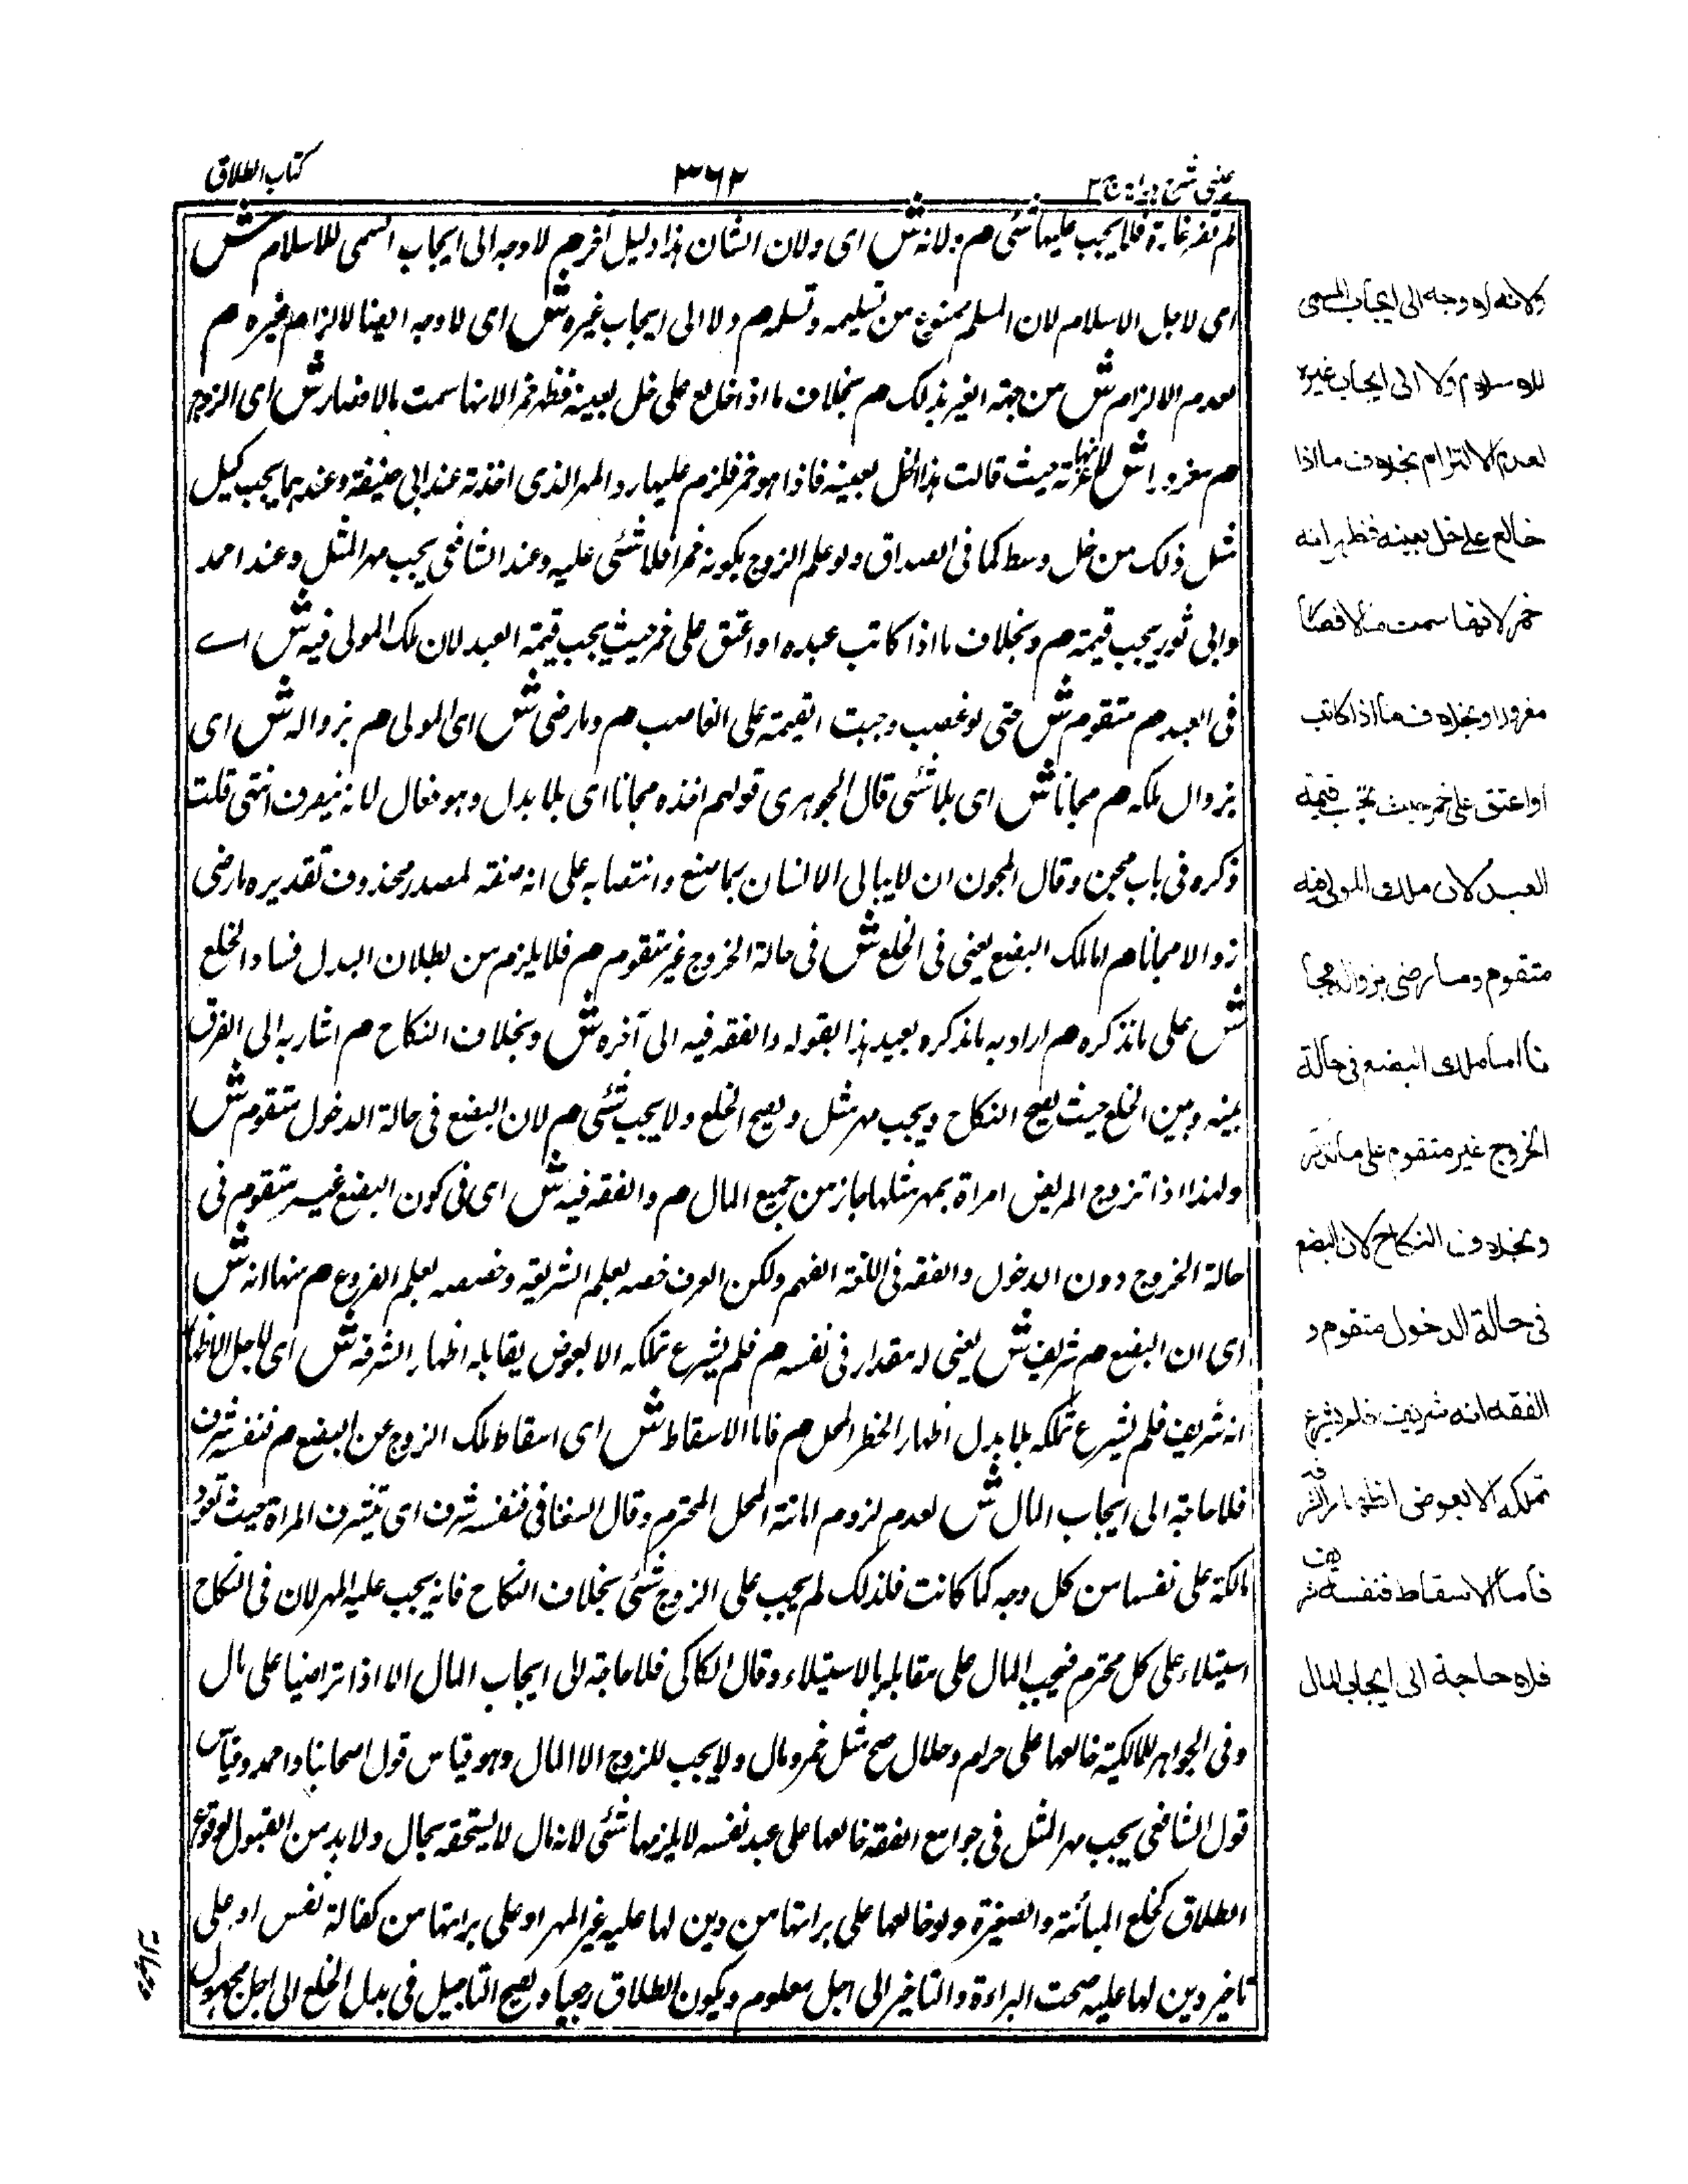 عینی شرح ہدایہ ج ۲
٣٦٢
کتاب الطلاق
لم تصر غارة فلا یجب علیها شئی م ولانه ش ای ولان الشان هذا دلیل آخر م لا وجه الی ایجاب المسمی للاسلام ش
ای لاجل الاسلام لان المسلم ممنوع من تسلیمه وتسلمه م ولا الی ایجاب غیره ش ای لا وجه ایضا لالزام غیره م
لعدم الالتزام ش من جهة الغیر بذلک م بخلاف ما اذا خالع علی خل بعینه فظهر خمر الانها سمت مالا فصار ش ای الزوج
م مغرورا ش حیث قالت هذا الخل بعینه فاذا هو خمر فلزم علیها رد المهر الذی اخذته عند ابی حنیفة وعندهما یجب کیل
مثل ذلک من خل وسط کما فی الصداق ولو علم الزوج بکونه خمرا فلا شئی علیه وعند الشافعی یجب مهر المثل وعند احمد
وابی ثور یجب قیمته م وبخلاف ما اذا کاتب عبده او اعتق علی خمر حیث یجب قیمة العبد لان ملک المولی فیه ش اے
فی العبد م متقوم ش حتی لو غصب وجبت القیمة علی الغاصب م وما رضی ش ای المولی م بزواله ش ای
بزوال ملکه م مجانا ش ای بلا شئی قال الجوهری قولهم اخذه مجانا ای بلا بدل وهو فعال لانه ینصرف انتهی قلت
ذکره فی باب مجن وقال المجون ان لا یبالی الانسان بما صنع وانتصابه علی انه صفة لمصدر محذوف تقدیره ما رضی
زوالا مجانا م اما ملک البضع یعنی فی الخلع ش فی حالة الخروج غیر متقوم م فلا یلزم من بطلان البدل فساد الخلع
ش علی ما نذکره م اراد به ما نذکره بعید هذا بقوله والفقه فیه الی آخره ش وبخلاف النکاح م اشار به الی الفرق
بینه وبین الخلع حیث یصح النکاح ویجب مهر مثل ویصح الخلع ولا یجب شئی م لان البضع فی حالة الدخول متقوم ش
ولهذا اذا تزوج المریض امراة بمهر مثلها جاز من جمیع المال م والفقه فیه ش ای فی کون البضع غیر متقوم فی
حالة الخروج دون الدخول والفقه فی اللغة الفهم ولکن العرف خصه بعلم الشریعة وخصصه بعلم الفروع م منها انه ش
ای ان البضع م شریف ش یعنی له مقدار فی نفسه م فلم یشرع تملکه الا بعوض یقابله اظهار الشرفه ش ای لاجل اظهار
انه شریف فلم یشرع تملکه بلا بدل اظهار الخطر المحل م فاما الاسقاط ش ای اسقاط ملک الزوج عن البضع م فنفسه شرف
فلا حاجة الی ایجاب المال ش لعدم لزوم اهانة المحل المحترم وقال السغناقی فنفسه شرف ای یتشرف المراة حیث تعود
مالکة علی نفسها من کل وجه کما کانت فلذلک لم یجب علی الزوج شئی بخلاف النکاح فانه یجب علیه المهر لان فی النکاح
استیلاء علی کل محترم فیجب المال علی مقابلة بالاستیلاء وقال الکاکی فلا حاجة الی ایجاب المال الا اذا تراضیا علی مال
وفی الجواهر للمالکیة خالعها علی حرام وحلال صح مثل خمر ومال ولا یجب للزوج الا المال وهو قیاس قول اصحابنا واحمد وقیاس
قول الشافعی یجب مهر المثل فی جوامع الفقه خالعها علی عبد نفسه لا یلزمها شئی لانه مال لا یستحقه بحال ولا بد من القبول لوقوع
الطلاق کخلع المبانة والصغیرة ولو خالعها علی براءتها من دین لها علیه غیر المهر او علی براءتها من کفالة نفس او علی
تاخیر دین لها علیه صحت البراءة والتاخیر الی اجل معلوم ویکون الطلاق رجعیا ویصح التاجیل فی بدل الخلع الی اجل مجهول
ولانه لا وجه الی ایجاب المسمی
للاسلام ولا الی ایجاب غیره
لعدم الالتزام بخلاف ما اذا
خالع علی خل بعینه فظهر انه
خمر لانها سمت مالا فصار
مغرورا وبخلاف ما اذا کاتب
او اعتق علی خمر حیث تجب قیمة
العبد لان ملک المولی فیه
متقوم وما رضی بزواله مجا
نا اما ملک البضع فی حالة
الخروج غیر متقوم علی ما نذکر
وبخلاف النکاح لان البضع
فی حالة الدخول متقوم و
الفقه انه شریف فلم یشرع
تملکه الا بعوض اظهارا لشرفه
فاما الاسقاط فنفسه شرف
فلا حاجة الی ایجاب المال